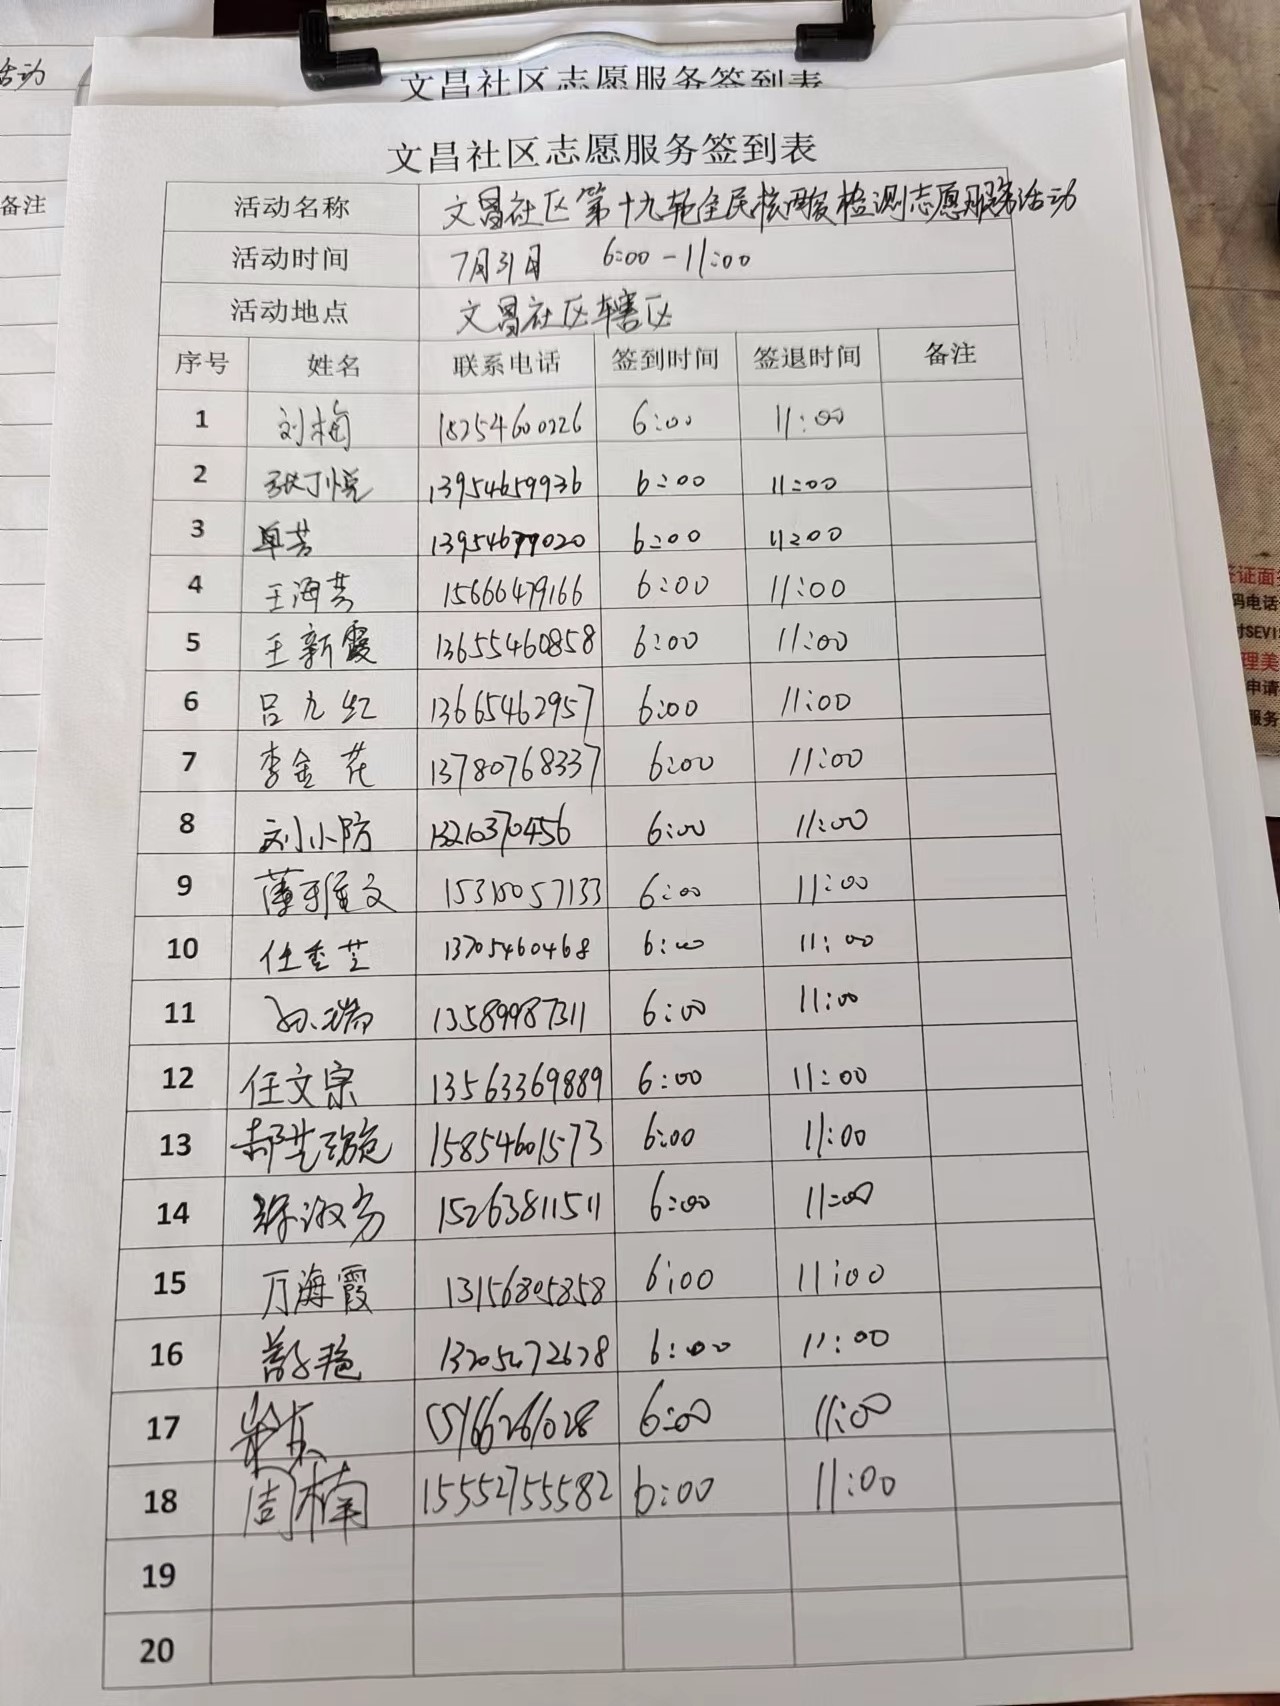 活动
备注
文昌社区志愿服务签到表
文昌社区志愿服务签到表
活动名称 文昌社区第十九轮全民核酸检测志愿服务活动
活动时间 7月31日 6:00-11:00
活动地点 文昌社区辖区
序号 姓名 联系电话 签到时间 签退时间 备注
1 刘梅 18254600226 6:00 11:00
2 张丁悦 13954659936 6:00 11:00
3 单芳 13954679020 6:00 11:00
4 王海芳 15666479166 6:00 11:00
5 王新霞 13655460858 6:00 11:00
6 吕九红 13665462957 6:00 11:00
7 李金花 13780768337 6:00 11:00
8 刘小防 13210370456 6:00 11:00
9 薄雅文 15310057133 6:00 11:00
10 任秀芝 13705460468 6:00 11:00
11 孙瑞 13589987311 6:00 11:00
12 任文宗 13563369889 6:00 11:00
13 15854601573 6:00 11:00
14 徐淑芳 15263811511 6:00 11:00
15 万海霞 13156805858 6:00 11:00
16 13205472678 6:00 11:00
17 15166261028 6:00 11:00
18 周楠 15552755582 6:00 11:00
19
20
签证面
码电话
付SEVI
理美
申请
服务